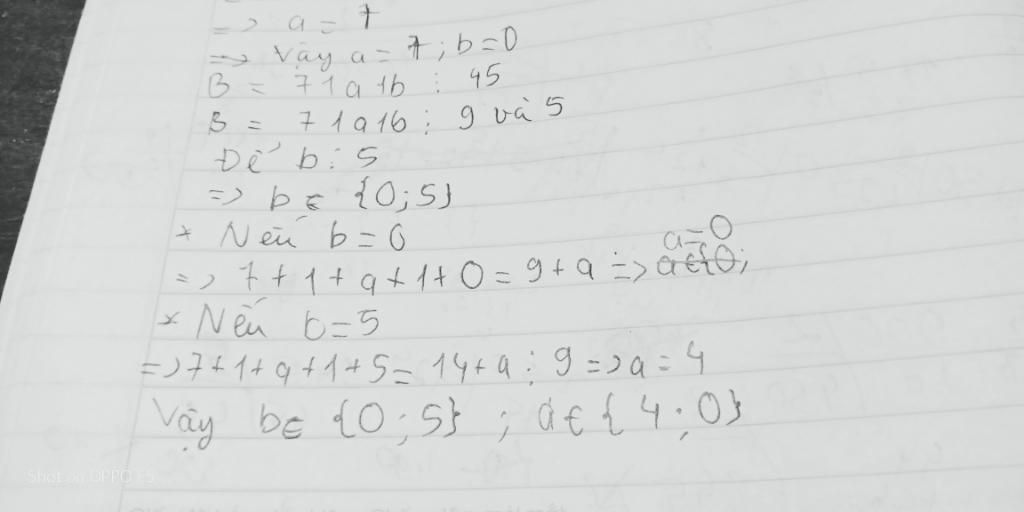 => a = 7
=> Vậy a = 7 ; b = 0
B = 71a1b ⋮ 45
B = 71a1b ⋮ 9 và 5
Để b ⋮ 5
=> b ∈ {0;5}
* Nếu b = 0
a = 0
=> 7 + 1 + a + 1 + 0 = 9 + a => a ∈ {0;
* Nếu b = 5
=> 7 + 1 + a + 1 + 5 = 14 + a ⋮ 9 => a = 4
Vậy b ∈ {0 ; 5} ; a ∈ {4 ; 0}
Shot on OPPO F5